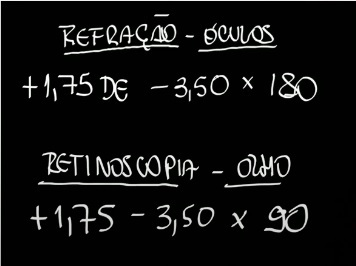 REFRAÇÃO - ÓCULOS
+1,75 DE -3,50 × 180
RETINOSCOPIA - OLHO
+1,75 - 3,50 × 90